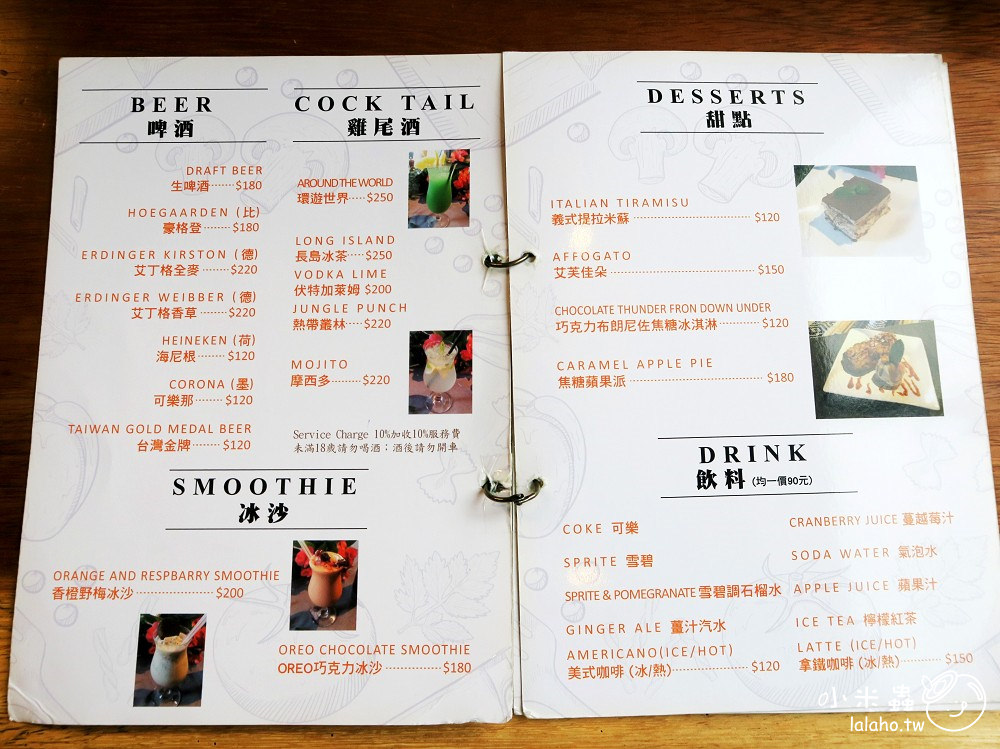 BEER
啤酒
DRAFT BEER
生啤酒·······$180
HOEGAARDEN (比)
豪格登·······$180
ERDINGER KIRSTON (德)
艾丁格全麥·······$220
ERDINGER WEIBBER (德)
艾丁格香草·······$220
HEINEKEN (荷)
海尼根·······$120
CORONA (墨)
可樂那·······$120
TAIWAN GOLD MEDAL BEER
台灣金牌·······$120
COCK TAIL
雞尾酒
AROUND THE WORLD
環遊世界·····$250
LONG ISLAND
長島冰茶····$250
VODKA LIME
伏特加萊姆 $200
JUNGLE PUNCH
熱帶叢林·····$220
MOJITO
摩西多·······$220
Service Charge 10%加收10%服務費
未滿18歲請勿喝酒；酒後請勿開車
SMOOTHIE
冰沙
ORANGE AND RESPBARRY SMOOTHIE
香橙野梅冰沙····················$200
OREO CHOCOLATE SMOOTHIE
OREO巧克力冰沙··············$180
DESSERTS
甜點
ITALIAN TIRAMISU
義式提拉米蘇·····························$120
AFFOGATO
艾芙佳朵····································$150
CHOCOLATE THUNDER FRON DOWN UNDER
巧克力布朗尼佐焦糖冰淇淋··········$120
CARAMEL APPLE PIE
焦糖蘋果派·································$180
DRINK
飲料 (均一價90元)
COKE 可樂
CRANBERRY JUICE 蔓越莓汁
SPRITE 雪碧
SODA WATER 氣泡水
SPRITE & POMEGRANATE 雪碧調石榴水
APPLE JUICE 蘋果汁
GINGER ALE 薑汁汽水
ICE TEA 檸檬紅茶
AMERICANO(ICE/HOT)
美式咖啡 (冰/熱)···················$120
LATTE (ICE/HOT)
拿鐵咖啡 (冰/熱)···········$150
小米蟲
lalaho.tw